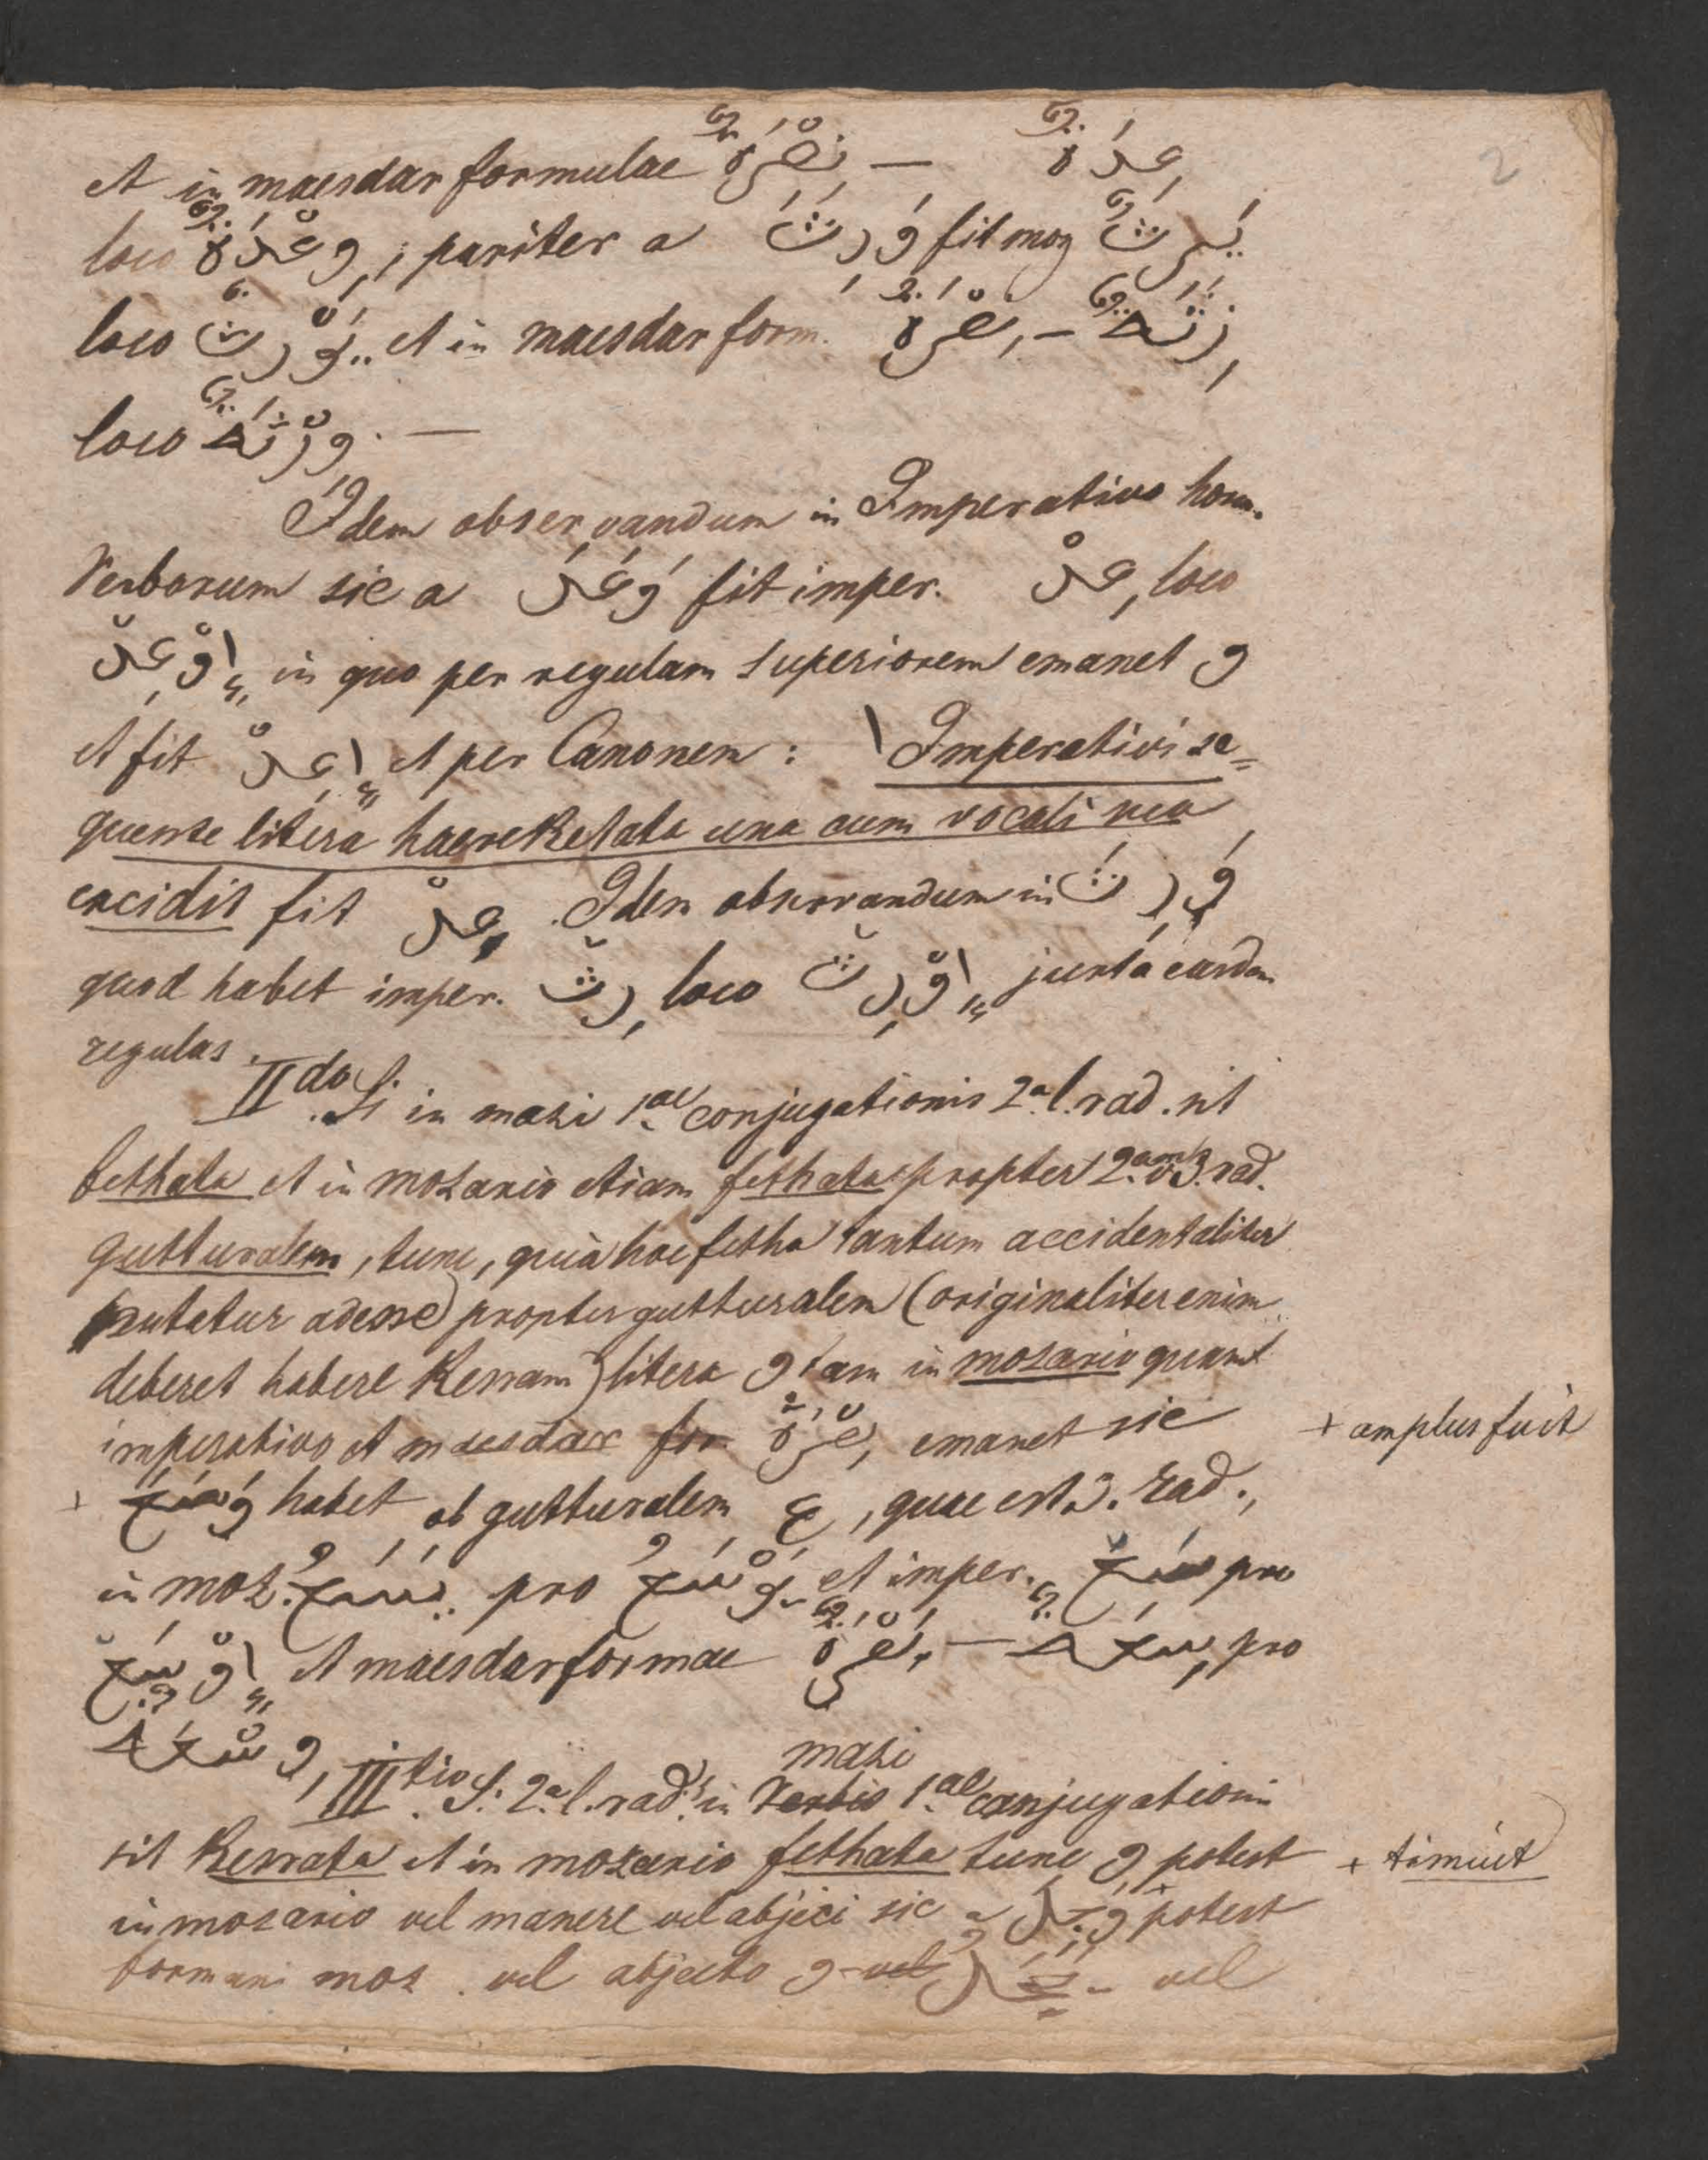 2
et in maesdar formulae نِصْرَةٌ — عِدَةٌ
loco وِعْدَةٌ, pariter a وَرِثَ fit moz يَرِثُ
loco يَوْرِثُ et in maesdar form. نِصْرَةٌ — رِثَةٌ
loco وِرْثَةٌ. —
Idem observandum in Imperativo horum
Verborum sic a وَعَدَ fit imper. عِدْ, loco
اِوْعِدْ in quo per regulam superiorem emanet و
et fit اِعِدْ et per Canonem: ا Imperativi se=
quente litera haereketata una cum vocali sua
excidit fit عِدْ. Idem observandum in وَرِثَ
quod habet imper. رِثْ loco اِوْرِثْ juxta easdem
regulas.
IIdo. Si in mazi 1ae conjugationis 2a l. rad. sit
fethata et in mozario etiam fethata propter 2am v 3. rad.
gutturalem, tunc, quia hoc fetha tantum accidentaliter
putatur adesse) propter gutturalem (originaliter enim
deberet habere Kesram) litera و tam in mozario quam
imperativo et maesdar for نِصْرَةٌ, emanet sic
+ وَسَعَ habet ob gutturalem ع, quae est 3. rad.,
in moz. يَسَعُ pro يَوْسَعُ et imper. سَعْ pro
اِوْسِعْ et maesdar formae نِصْرَةٌ — سِعَةٌ pro
وِسْعَةٌ
mazi
IIItio. Si 2a l. rad. in Verbis 1ae conjugationis
sit Kesrata et in mozario fethata tunc و potest
in mozario vel manere vel abjici sic a وَجِلَ + potest
formari moz. vel abjecto و vel يَجَلُ vel
+ amplus fuit
+ timuit